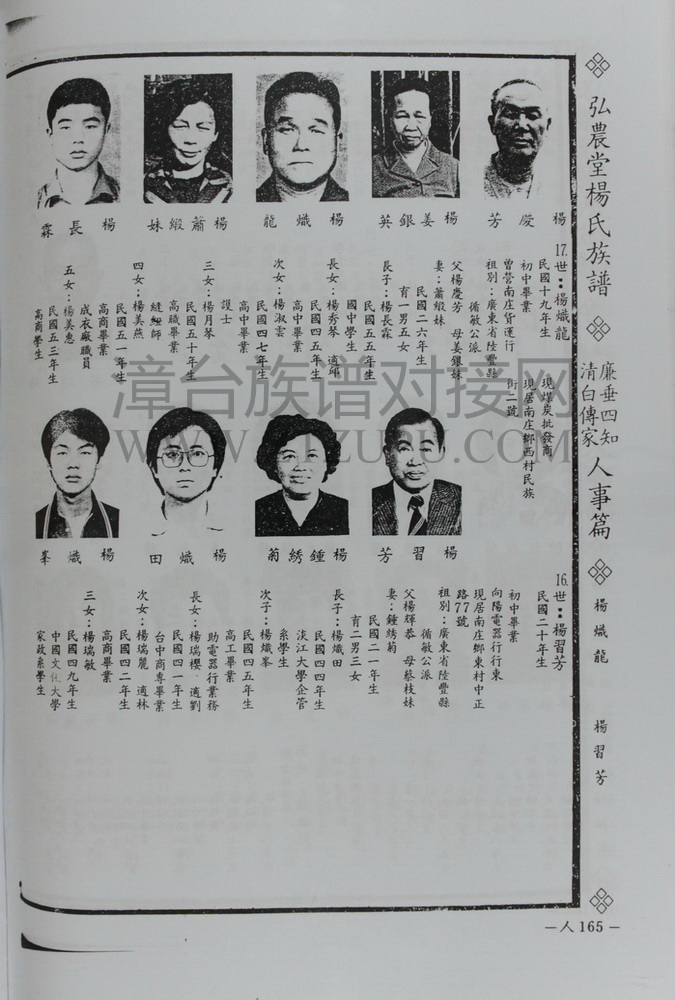 弘農堂楊氏族譜
廉垂四知
清白傳家
人事篇
楊熾龍
楊習芳
楊慶芳
楊姜銀英
楊熾龍
楊蕭緞妹
楊長霖
17.世：楊熾龍
民國十九年生
初中畢業
曾營南庄貨運行
現煤炭批發商
現居南庄鄉西村民族
街二號
祖別：廣東省陸豐縣
循敏公派
父楊慶芳 母姜銀妹
妻：蕭緞妹
民國二六年生
有一男五女
長子：楊長霖
民國五五年生
國中學生
長女：楊秀琴 適邱
民國四五年生
高中畢業
次女：楊淑雲
民國四七年生
高中畢業
護士
三女：楊月琴
民國五十年生
高職畢業
縫紉師
四女：楊美燕
民國五一年生
高商畢業
成衣廠職員
五女：楊美惠
民國五三年生
高商學生
楊習芳
楊鍾綉菊
楊熾田
楊熾峯
16.世：楊習芳
民國二十年生
初中畢業
向陽電器行行東
現居南庄鄉東村中正
路77號
祖別：廣東省陸豐縣
循敏公派
父楊輝恭 母蔡枝妹
妻：鍾綉菊
民國二一年生
有二男三女
長子：楊熾田
民國四四年生
淡江大學企管
系學生
次子：楊熾峯
民國四五年生
高工畢業
助電器行業務
長女：楊瑞櫻 適劉
民國四一年生
台中商專畢業
次女：楊瑞麗 適林
民國四二年生
高商畢業
三女：楊瑞敏
民國四九年生
中國文化大學
家政系學生
漳台族谱对接网
－人165－